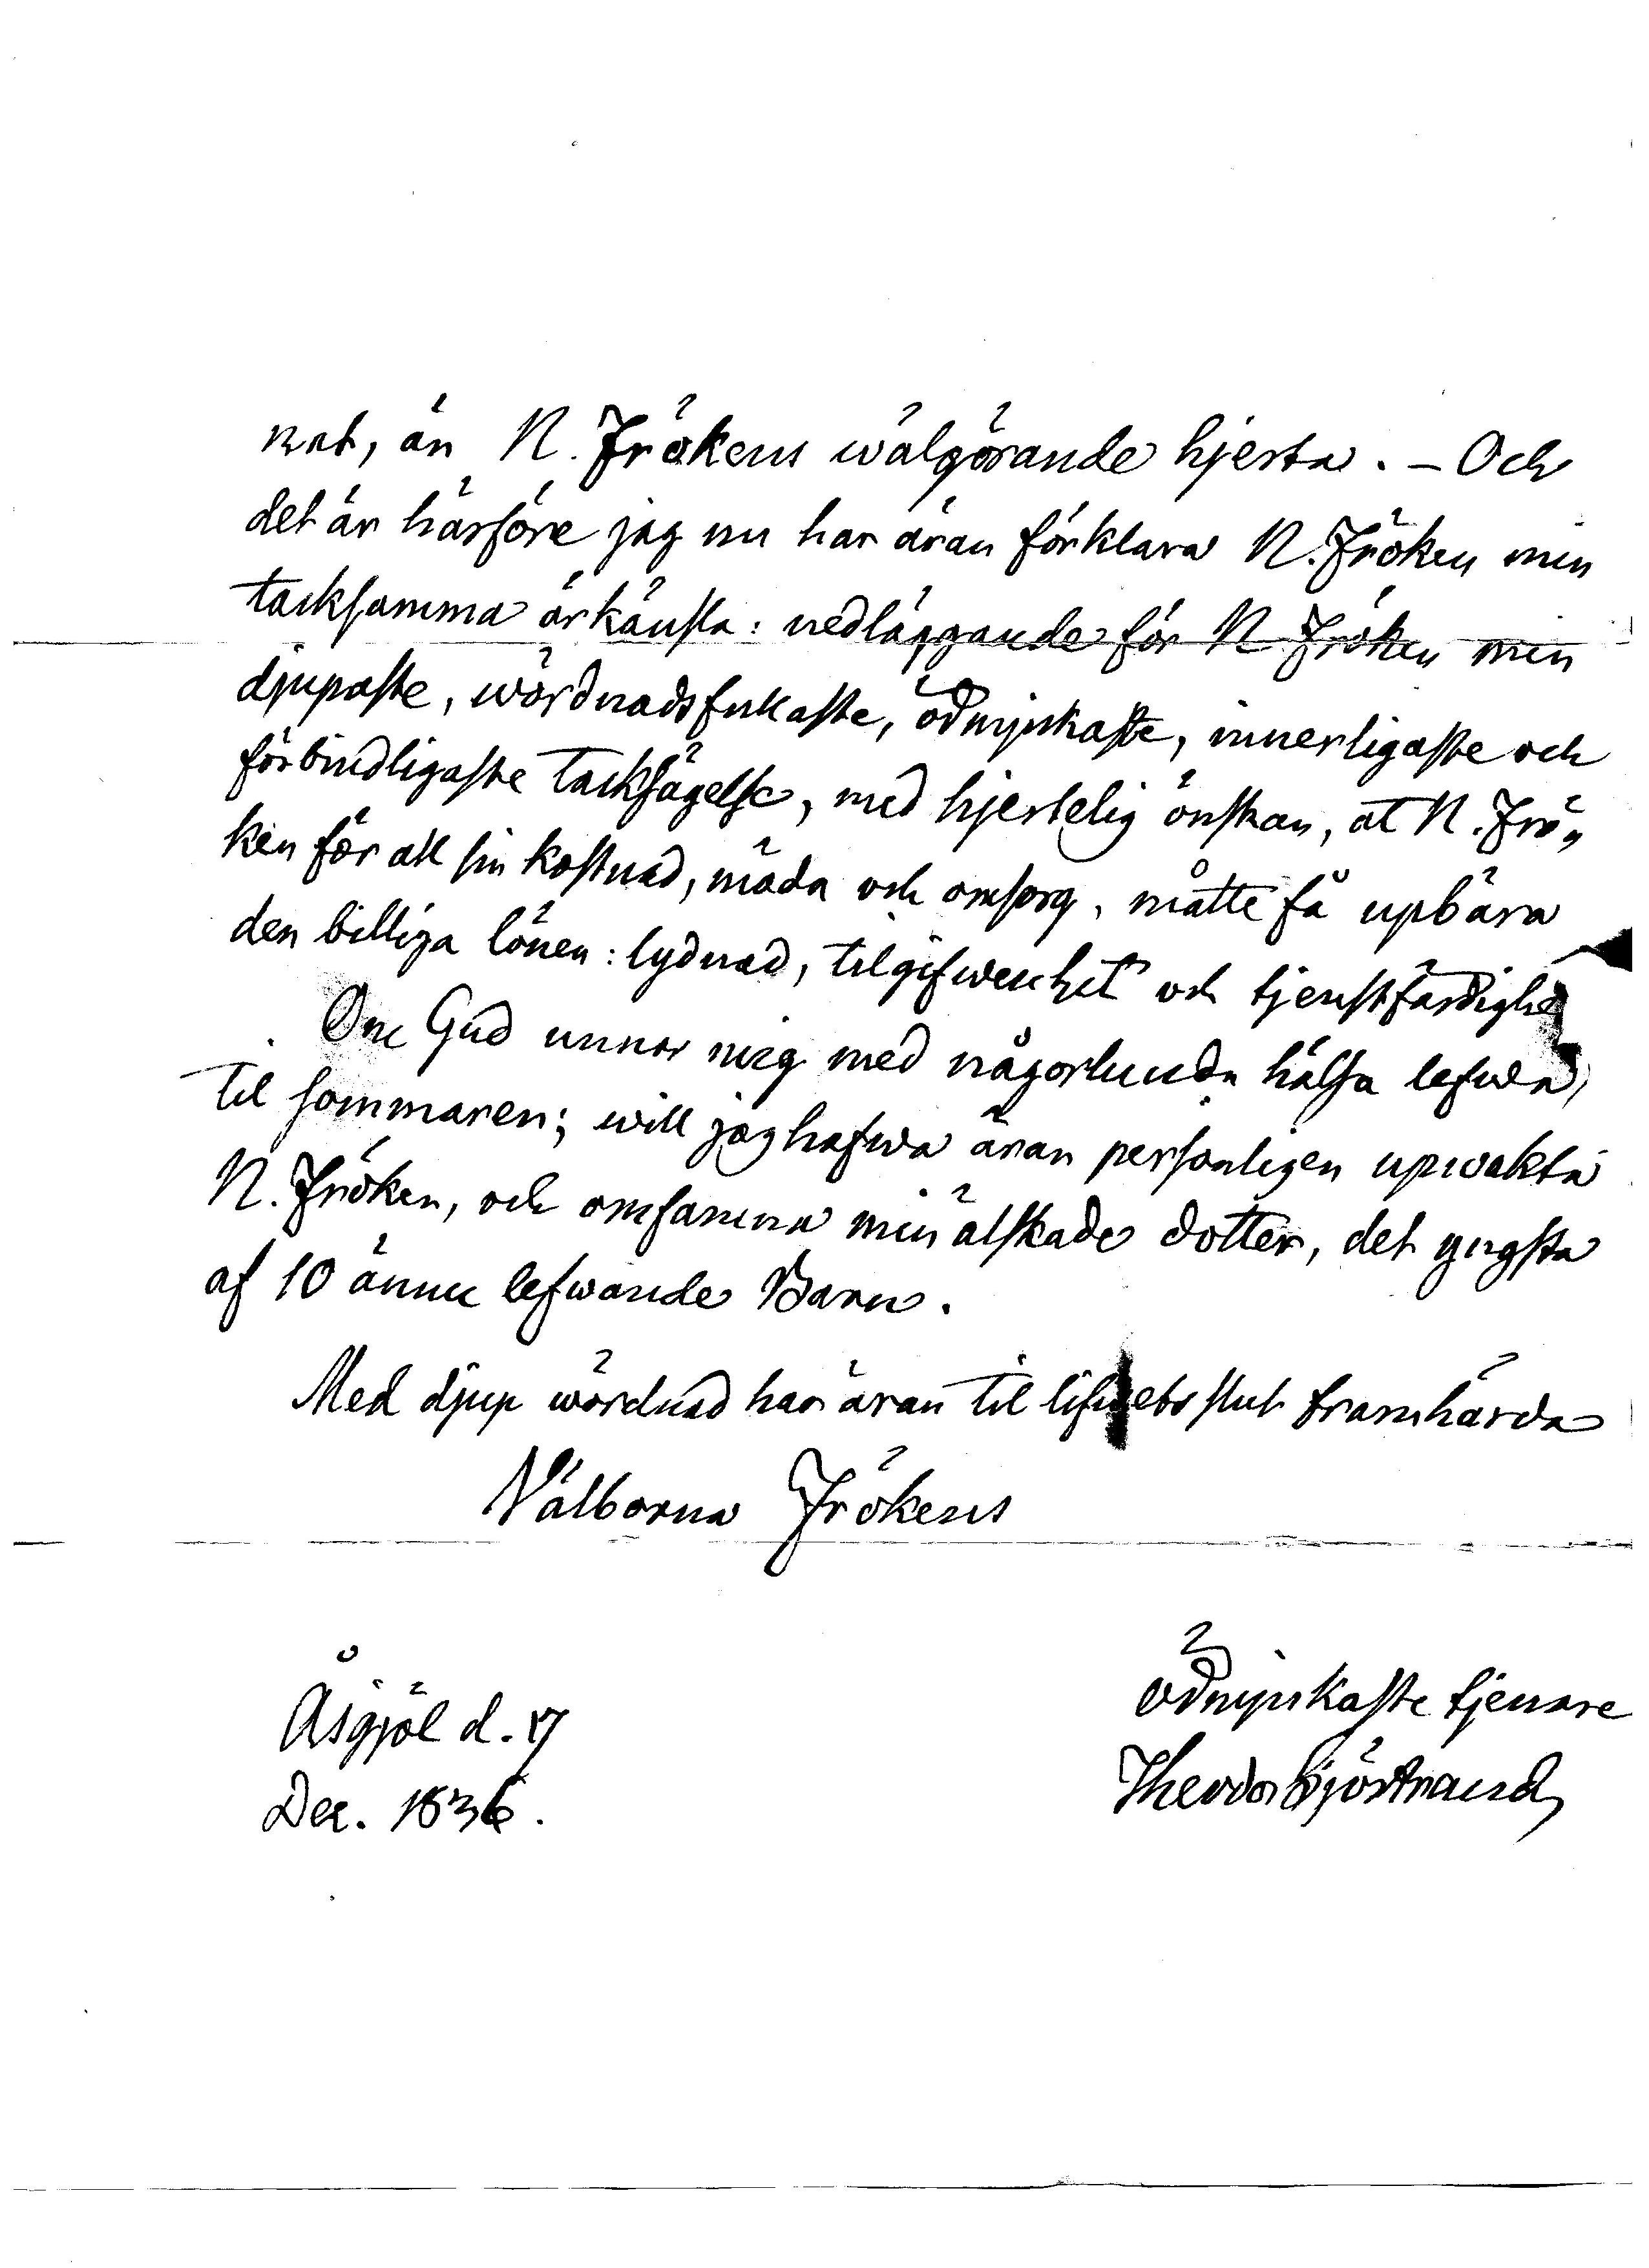 nat, än N. Frökens wälgörande hjerta. – Och
det är härföre jag nu har äran förklara N. Fröken min
tacksamma ärkänsla: nedläggande för N Fröken min
djupaste, wördnadsfullaste, ödmjukaste, innerligaste och
förbindligaste tacksägelse, med hjertelig önskan, at N. Frö„
ken för all sin kostnad, möda och omsorg, måtte få upbära
den billiga lönen: lydnad, tilgifwenhet och tjenstfärdighet
Om Gud unnar mig med någorlunda hälsa lefwa
til sommaren; will jag hafwa äran personligen upwakta
N. Fröken, och omfamna min älskade dotter, det yngsta
af 10 ännu lefwande Barn.
Med djup wördnad har äran til lifwets slut framhärda
Välborna Frökens
ödmjukaste tjenare
Theodor Sjöstrand
Åsgöl d. 17
Dec. 1836.